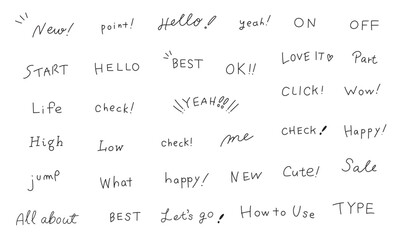 New! point! Hello! yeah! ON OFF
START HELLO BEST OK!! LOVE IT♡ Part
Life check! YEAH!! CLICK! Wow!
High Low check! me CHECK! Happy!
jump What happy! NEW Cute! Sale
All about BEST Let's go! How to Use TYPE